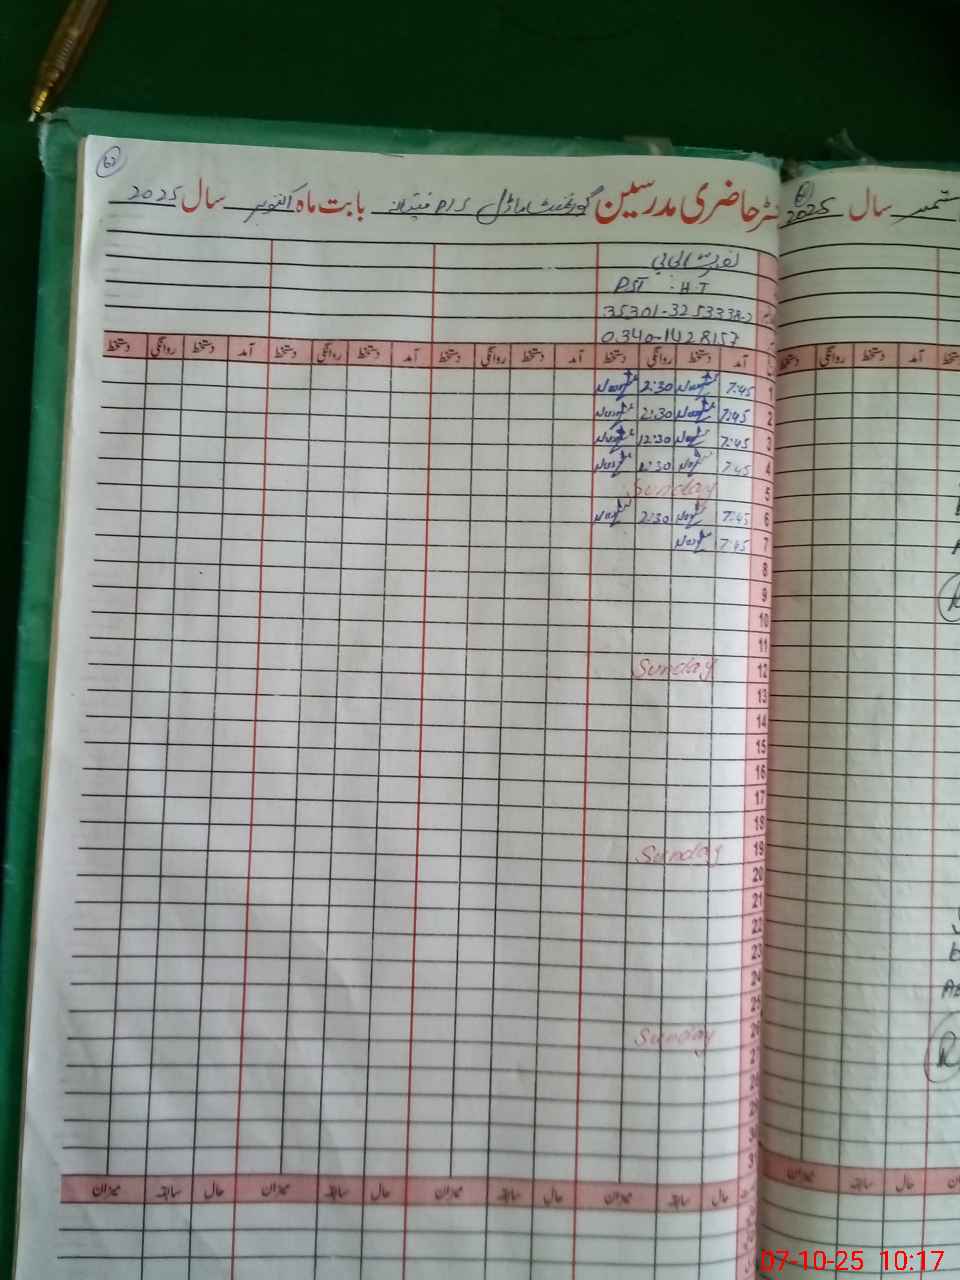 رجسٹر حاضری مدرسین گورنمنٹ ماڈل P/S بابت ماہ اکتوبر سال 2025
ستمبر سال 2025
PST : H.T
35301-3253338-2
0340-1428157
آمد دستخط روانگی دستخط آمد دستخط روانگی دستخط آمد دستخط روانگی دستخط آمد دستخط روانگی دستخط
1 7:45 2:30
2 7:45 2:30
3 7:45 12:30
4 7:45 2:30
5 Sunday
6 7:45 2:30
7 7:45
8
9
10
11
12 Sunday
13
14
15
16
17
18
19 Sunday
20
21
22
23
24
25
26 Sunday
27
28
29
30
31
حال سابقہ میزان حال سابقہ میزان حال سابقہ میزان حال سابقہ میزان
07-10-25 10:17